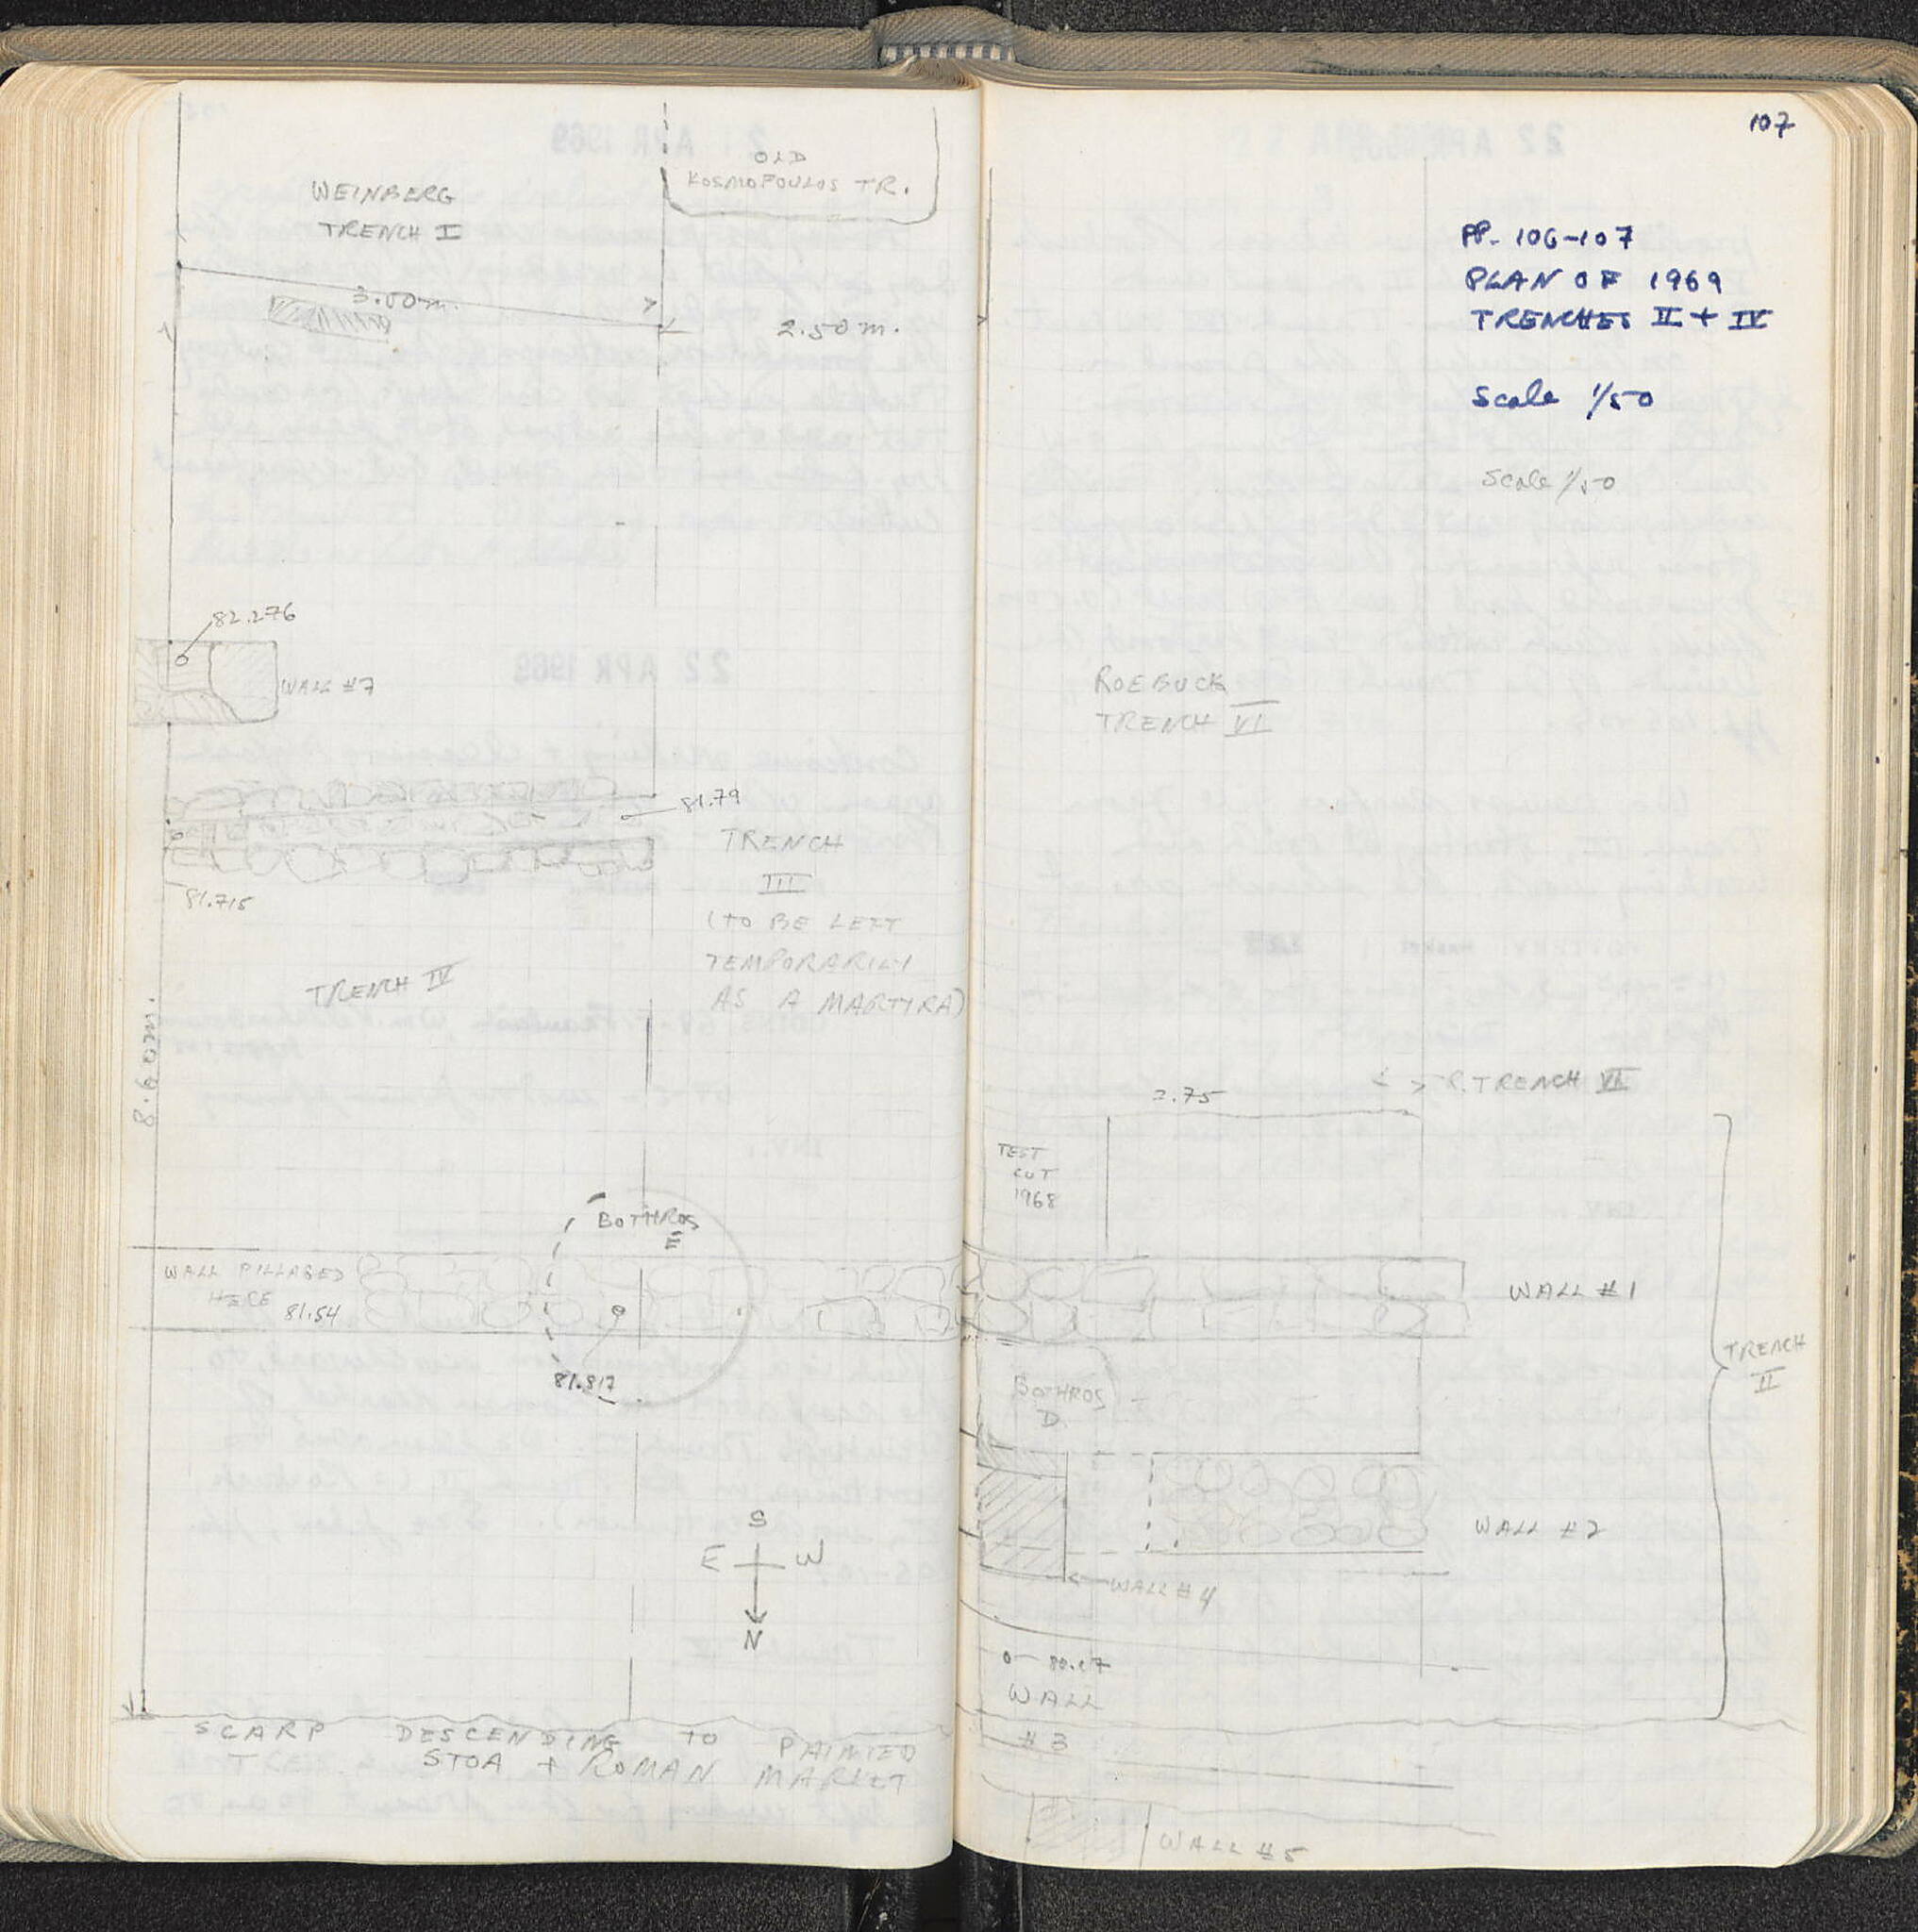 WEINBERG
TRENCH I
OLD
KOSMOPOULOS TR.
3.00m.
2.50m.
82.276
WALL #7
81.79
TRENCH
III
(TO BE LEFT
TEMPORARILY
AS A MARTYRA)
81.715
TRENCH IV
8.60m.
BOTHROS
E
WALL PILLAGED
HERE
81.54
81.817
S
E W
N
SCARP DESCENDING TO PAINTED
STOA + ROMAN MARKET
107
PP. 106-107
PLAN OF 1969
TRENCHES II + IV
Scale 1/50
Scale 1/50
ROEBUCK
TRENCH VI
2.75
< > R. TRENCH VI
TEST
CUT
1968
WALL #1
TRENCH
II
BOTHROS
D.
WALL #2
WALL #4
WALL
#3
WALL #5